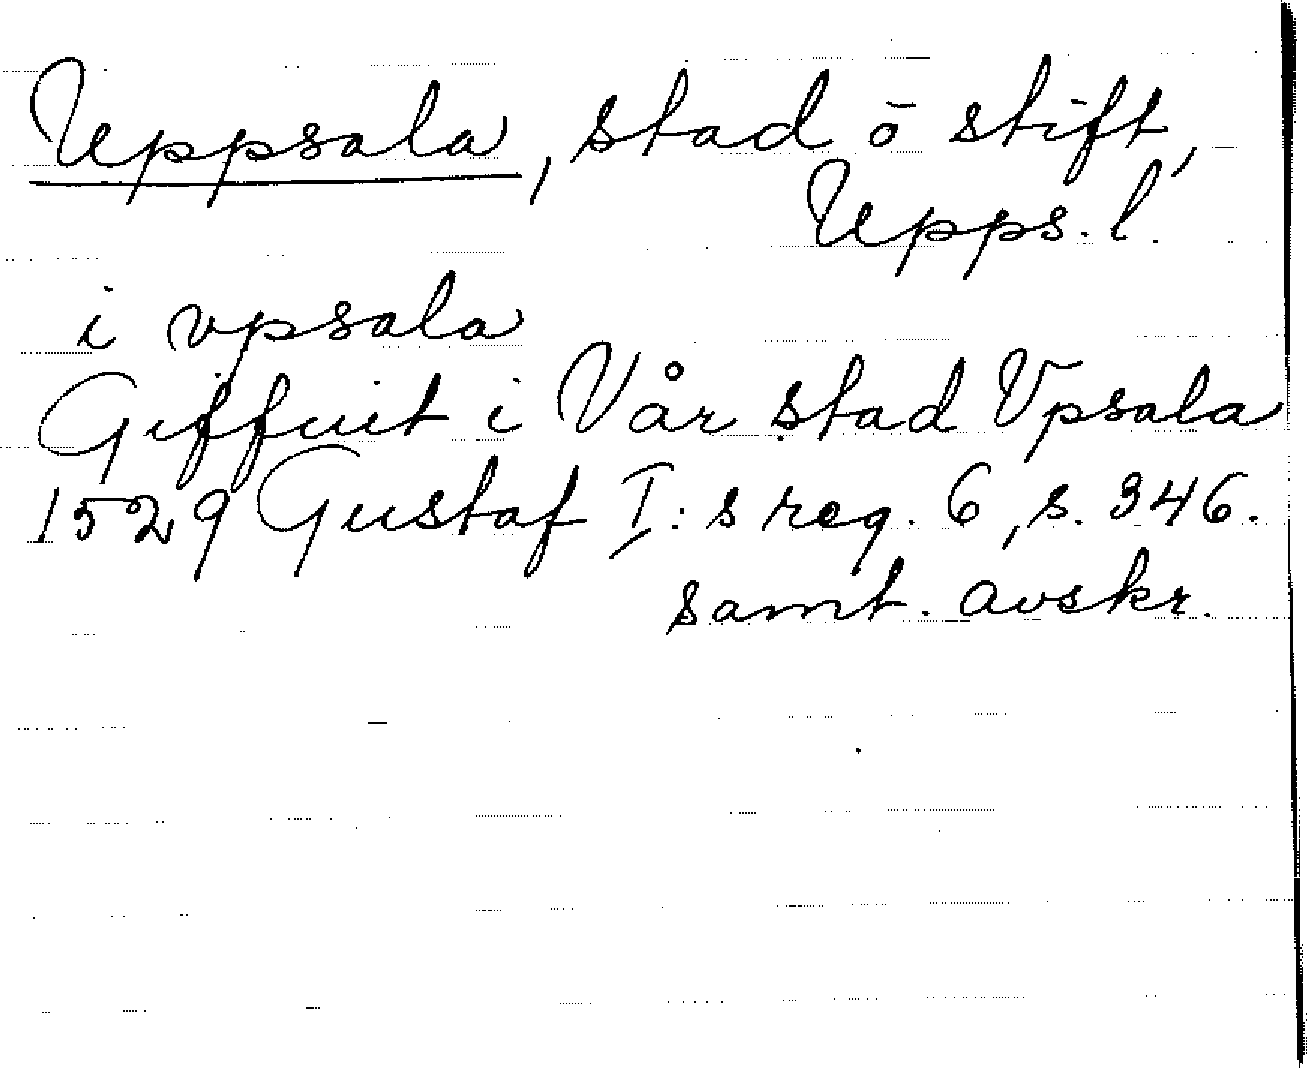 Uppsala, stad o stift,
Upps. l.
i vpsala
Giffuit i Vår stad Vpsala
1529 Gustaf I:s reg. 6, s. 346.
samt. avskr.